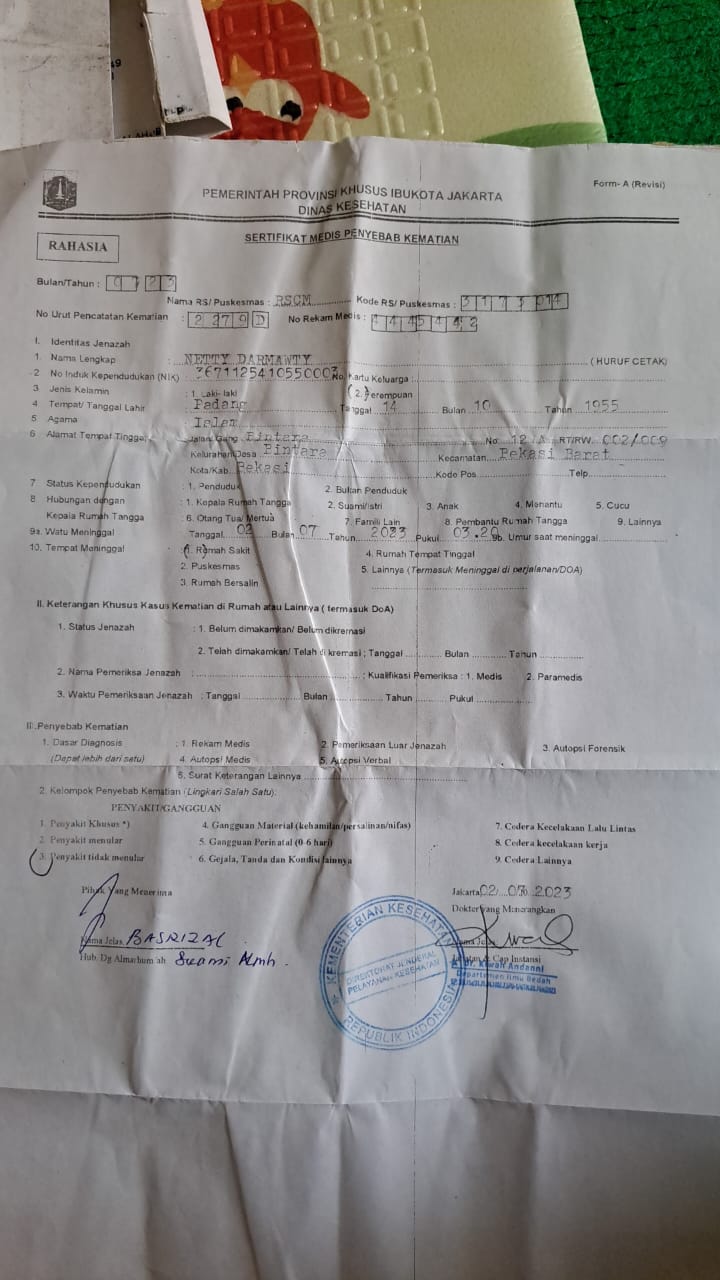 Form- A (Revisi)
PEMERINTAH PROVINSI KHUSUS IBUKOTA JAKARTA
DINAS KESEHATAN
RAHASIA
SERTIFIKAT MEDIS PENYEBAB KEMATIAN
Bulan/Tahun : 0 7 2 3
Nama RS/ Puskesmas : RSCM Kode RS/ Puskesmas : 3 1 7 3 014
No Urut Pencatatan Kematian : 2 279 D No Rekam Medis :
I. Identitas Jenazah
1. Nama Lengkap : NETTY DARMAWTY ( HURUF CETAK)
2 No Induk Kependudukan (NIK) : 3671125410550003 No. Kartu Keluarga :
3 Jenis Kelamin : 1. Laki- laki ( 2. )Perempuan
4 Tempat/ Tanggal Lahir Padang Tanggal 14 Bulan 10 Tahun 1955
5 Agama : Islam
6 Alamat Tempat Tinggal : Jalan/Gang Bintara No: 12 A RT/RW. 002/009
Kelurahan/Desa Bintara Kecamatan Bekasi Barat
Kota/Kab. Bekasi Kode Pos Telp
7 Status Kependudukan : 1. Penduduk 2. Bukan Penduduk
8 Hubungan dengan : 1. Kepala Rumah Tangga 2. Suami/istri 3. Anak 4. Menantu 5. Cucu
Kepala Rumah Tangga : 6. Otang Tua/ Mertua 7. Famili Lain 8. Pembantu Rumah Tangga 9. Lainnya
9a. Watu Meninggal Tanggal 02 Bulan 07 Tahun 2023 Pukul 03.20 9b. Umur saat meninggal
10. Tempat Meninggal : (1. )Rumah Sakit 4. Rumah Tempat Tinggal
2. Puskesmas 5. Lainnya (Termasuk Meninggal di perjalanan/DOA)
3. Rumah Bersalin
II. Keterangan Khusus Kasus Kematian di Rumah atau Lainnya ( termasuk DoA)
1. Status Jenazah : 1. Belum dimakamkan/ Belum dikremasi
2. Telah dimakamkan/ Telah di kremasi ; Tanggal Bulan Tahun
2. Nama Pemeriksa Jenazah : ; Kualifikasi Pemeriksa : 1. Medis 2. Paramedis
3. Waktu Pemeriksaan Jenazah : Tanggal Bulan Tahun Pukul
III.Penyebab Kematian
1. Dasar Diagnosis : 1. Rekam Medis 2. Pemeriksaan Luar Jenazah 3. Autopsi Forensik
(Dapat lebih dari satu) 4. Autopsi Medis 5. Autopsi Verbal
6. Surat Keterangan Lainnya
2. Kelompok Penyebab Kematian (Lingkari Salah Satu):
PENYAKIT/GANGGUAN
1. Penyakit Khusus *) 4. Gangguan Material (kehamilan/persalinan/nifas) 7. Cedera Kecelakaan Lalu Lintas
2. Penyakit menular 5. Gangguan Perinatal (0-6 hari) 8. Cedera kecelakaan kerja
3. Penyakit tidak menular 6. Gejala, Tanda dan Kondisi lainnya 9. Cedera Lainnya
Pihak Yang Menerima Jakarta, 02 07 2023
Dokter yang Menerangkan
Nama Jelas BASRIZAL Nama Jelas
Hub. Dg Almarhum/ah Suami Almh. Jabatan & Cap Instansi
KEMENTERIAN KESEHATAN
DIREKTORAT JENDERAL
PELAYANAN KESEHATAN
REPUBLIK INDONESIA
dr. Kiwah Andanni
Departemen Ilmu Bedah